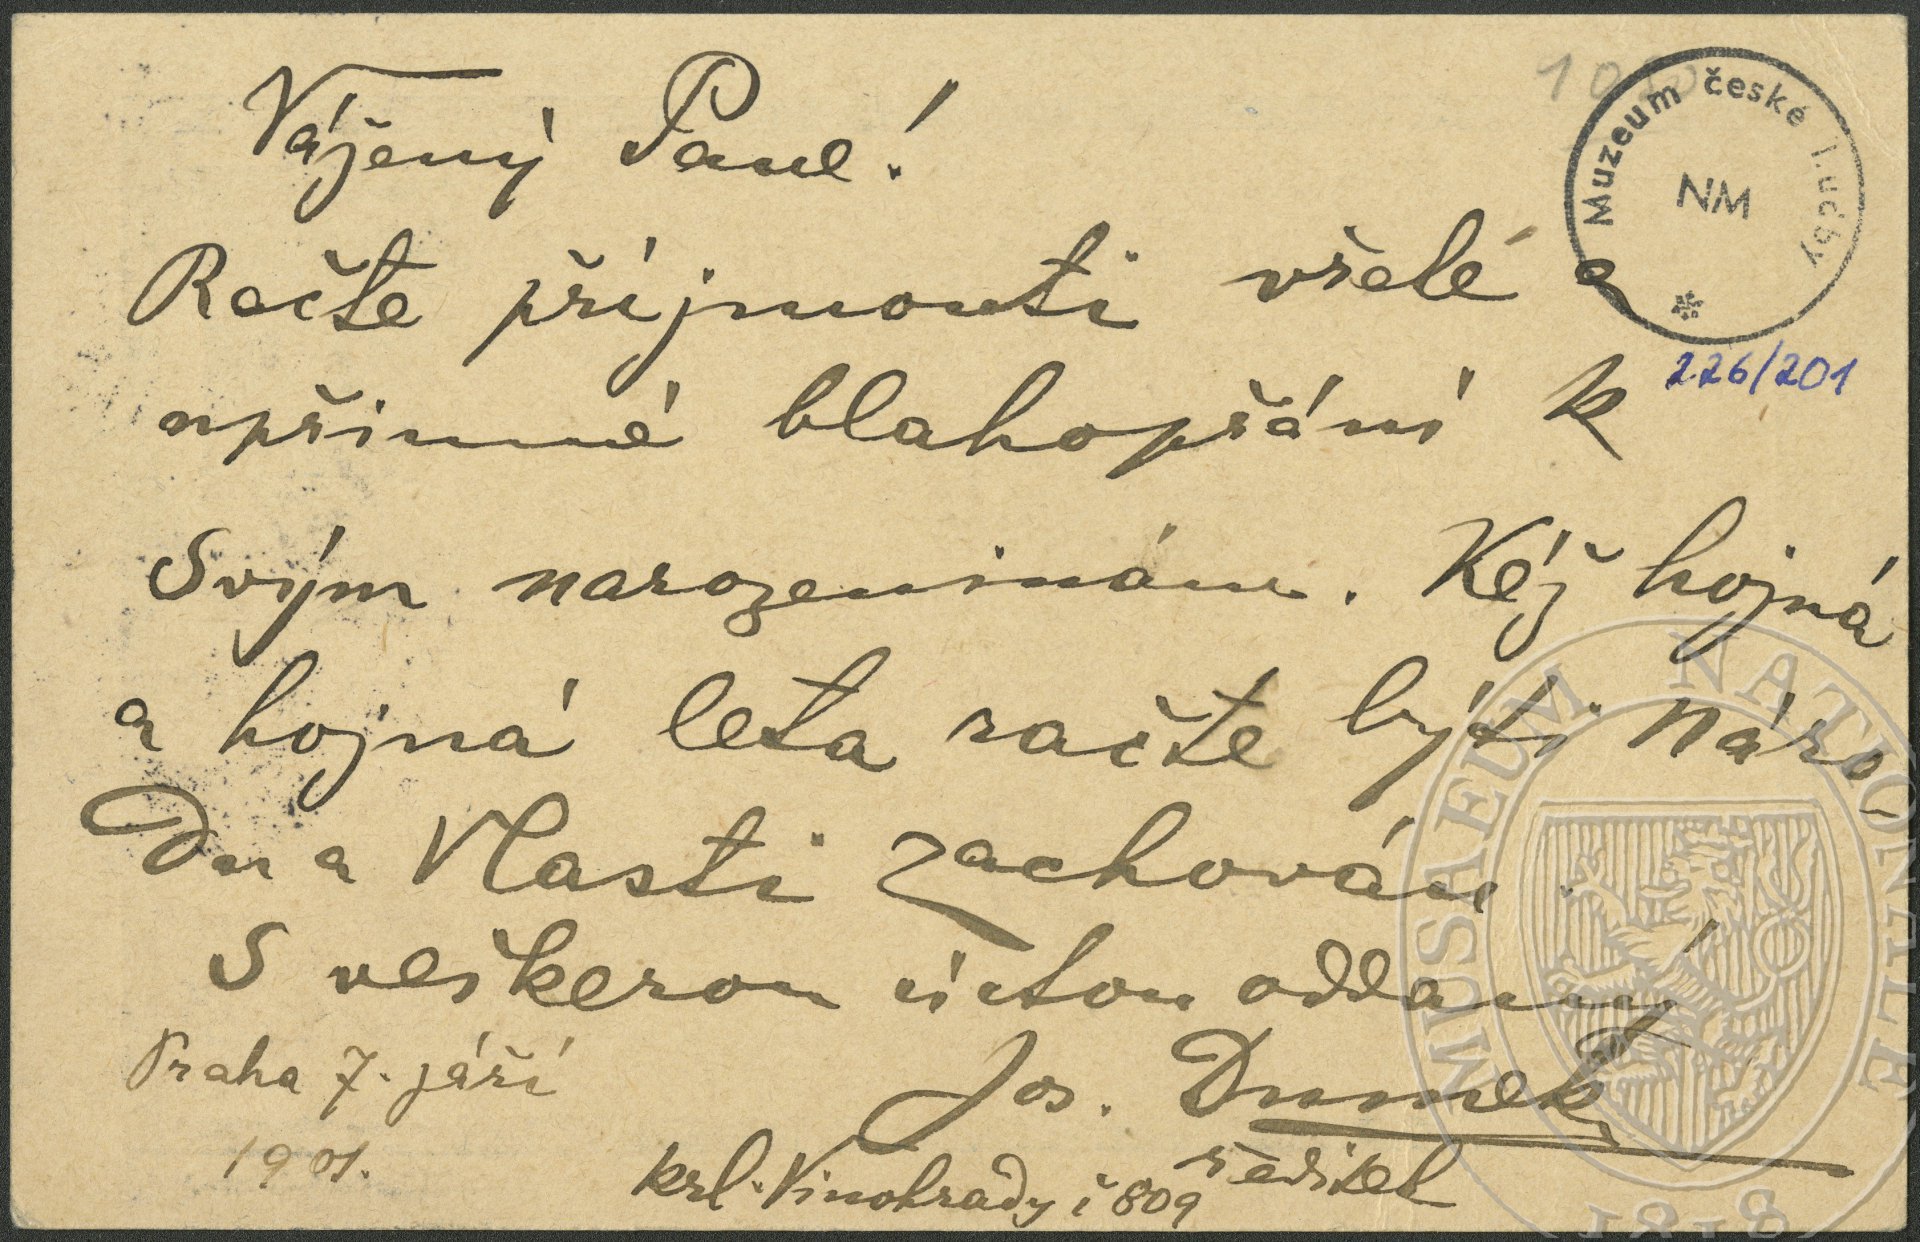 Vážený Pane!
Račte přijmouti vřelé a
upřímné blahopřání k
Svým narozeninám. Kéž hojná
a hojná leta račte býti náro
du a Vlasti zachován.
S veškerou úctou oddaný
Praha 7. září
1901.
Jos. Dumek
ředitel
krl. Vinohrady č 809
Muzeum české hudby
NM
226/201
MUSAEUM NATIONALE
1818